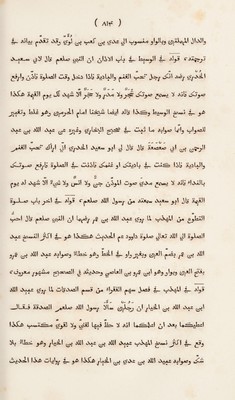 ( ٨٤٣ )
والدال المهملتين وبالواو منسوب الى عدى بن كعب بن لُوَىّ وقد تقدّم بيانه فى
ترجمته، قوله فى الوسيط فى باب الاذان ان النبى صلعم قال لابى سعيد
الخدرى رضه انك رجل تحبّ الغنم والبادية فاذا دخل وقت الصلوة فاذن وارفع
صوتك فانه لا يسمع صوتك حَجَرٌ ولا مَدَرٌ ولا شَجَرٌ الّا شهد لك يوم القيمة هكذا
هو فى نسخ الوسيط وكذا قاله ايضا شيخنا امام الحرمين وهو غلط وتغيير
للصواب وانما صوابه ما ثبت فى صحيح البخارى وغيره عن عبد الله بن عبد
الرحمن بن ابى صعصعة قال قال لى ابو سعيد الخدرى انى اراك تحبّ الغنم
والبادية فاذا كنت فى باديتك او غنمك فاذنت فى الصلوة فارفع صوتك
بالنداء فانه لا يسمع مدى صوت الموذن جنٌّ ولا انْس ولا شىء الّا شهد له يوم
القيمة قال ابو سعيد سمعته من رسول الله صلعم، قوله فى اخر باب صلوة
التطوّع من المهذب لما روى عبد الله بن عمر رضهما ان النبى صلعم قال احبّ
الصلوة الى الله تعالى صلوة داوود عم الحديث هكذا هو فى اكثر النسخ عبد
الله بن عمر بضم العين وبغير واو فى الخط وهو خطاء وصوابه عبد الله بن عمرو
بفتح العين وبواو وهو ابن عمرو بن العاصى وحديثه فى الصحيحين مشهور معروف،
قوله فى المهذب فى فصل سهم الفقراء من قسم الصدقات لما روى عبيد الله
ابن عبد الله بن الخيار ان رَجُلَيْن سألا رسول الله صلعم الصدقة فقال
اعطيكما بعد ان اعلمكما انه لا حظّ فيها لغنىّ ولا لقوىّ مكتسب هكذا
وقع فى اكثر نسخ المهذب عبيد الله بن عبد الله بن الخيار وهو خطاء بلا
شكّ وصوابه عبيد الله بن عدى بن الخيار هكذا هو فى روايات هذا الحديث